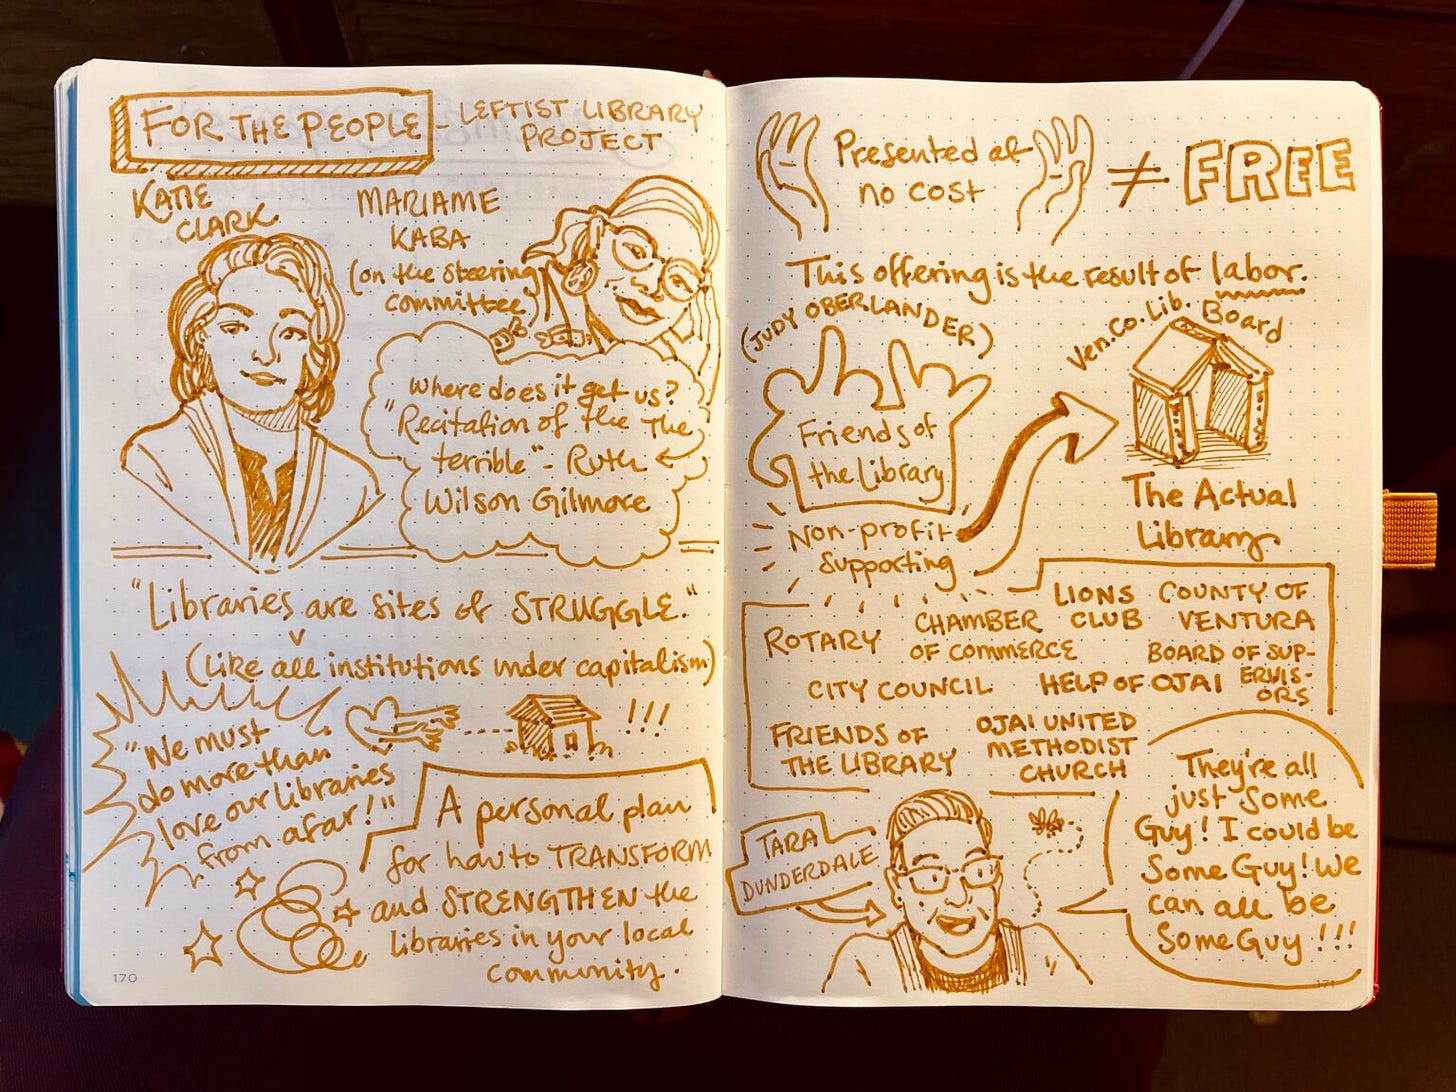 FOR THE PEOPLE - LEFTIST LIBRARY
PROJECT
KATIE
CLARK
MARIAME
KABA
(on the steering
committee)
where does it get us?
"Recitation of the The
terrible" - Ruth
Wilson Gilmore
"Libraries are sites of STRUGGLE."
(like all institutions under capitalism)
"We must
do more than
love our libraries
from afar!"
!!!
A personal plan
for how to TRANSFORM
and STRENGTHEN the
libraries in your local
community.
170
Presented at
no cost
≠ FREE
This offering is the result of labor.
(JUDY OBERLANDER)
Friends of
the Library
Non-profit
Supporting
Ven.Co.Lib. Board
The Actual
Library
ROTARY
CHAMBER
OF COMMERCE
LIONS
CLUB
COUNTY OF
VENTURA
BOARD OF SUP-
ERVIS-
ORS
CITY COUNCIL
HELP OF OJAI
FRIENDS OF
THE LIBRARY
OJAI UNITED
METHODIST
CHURCH
TARA
DUNDERDALE
They're all
just Some
Guy! I could be
Some Guy! We
can all be
Some Guy!!!
171